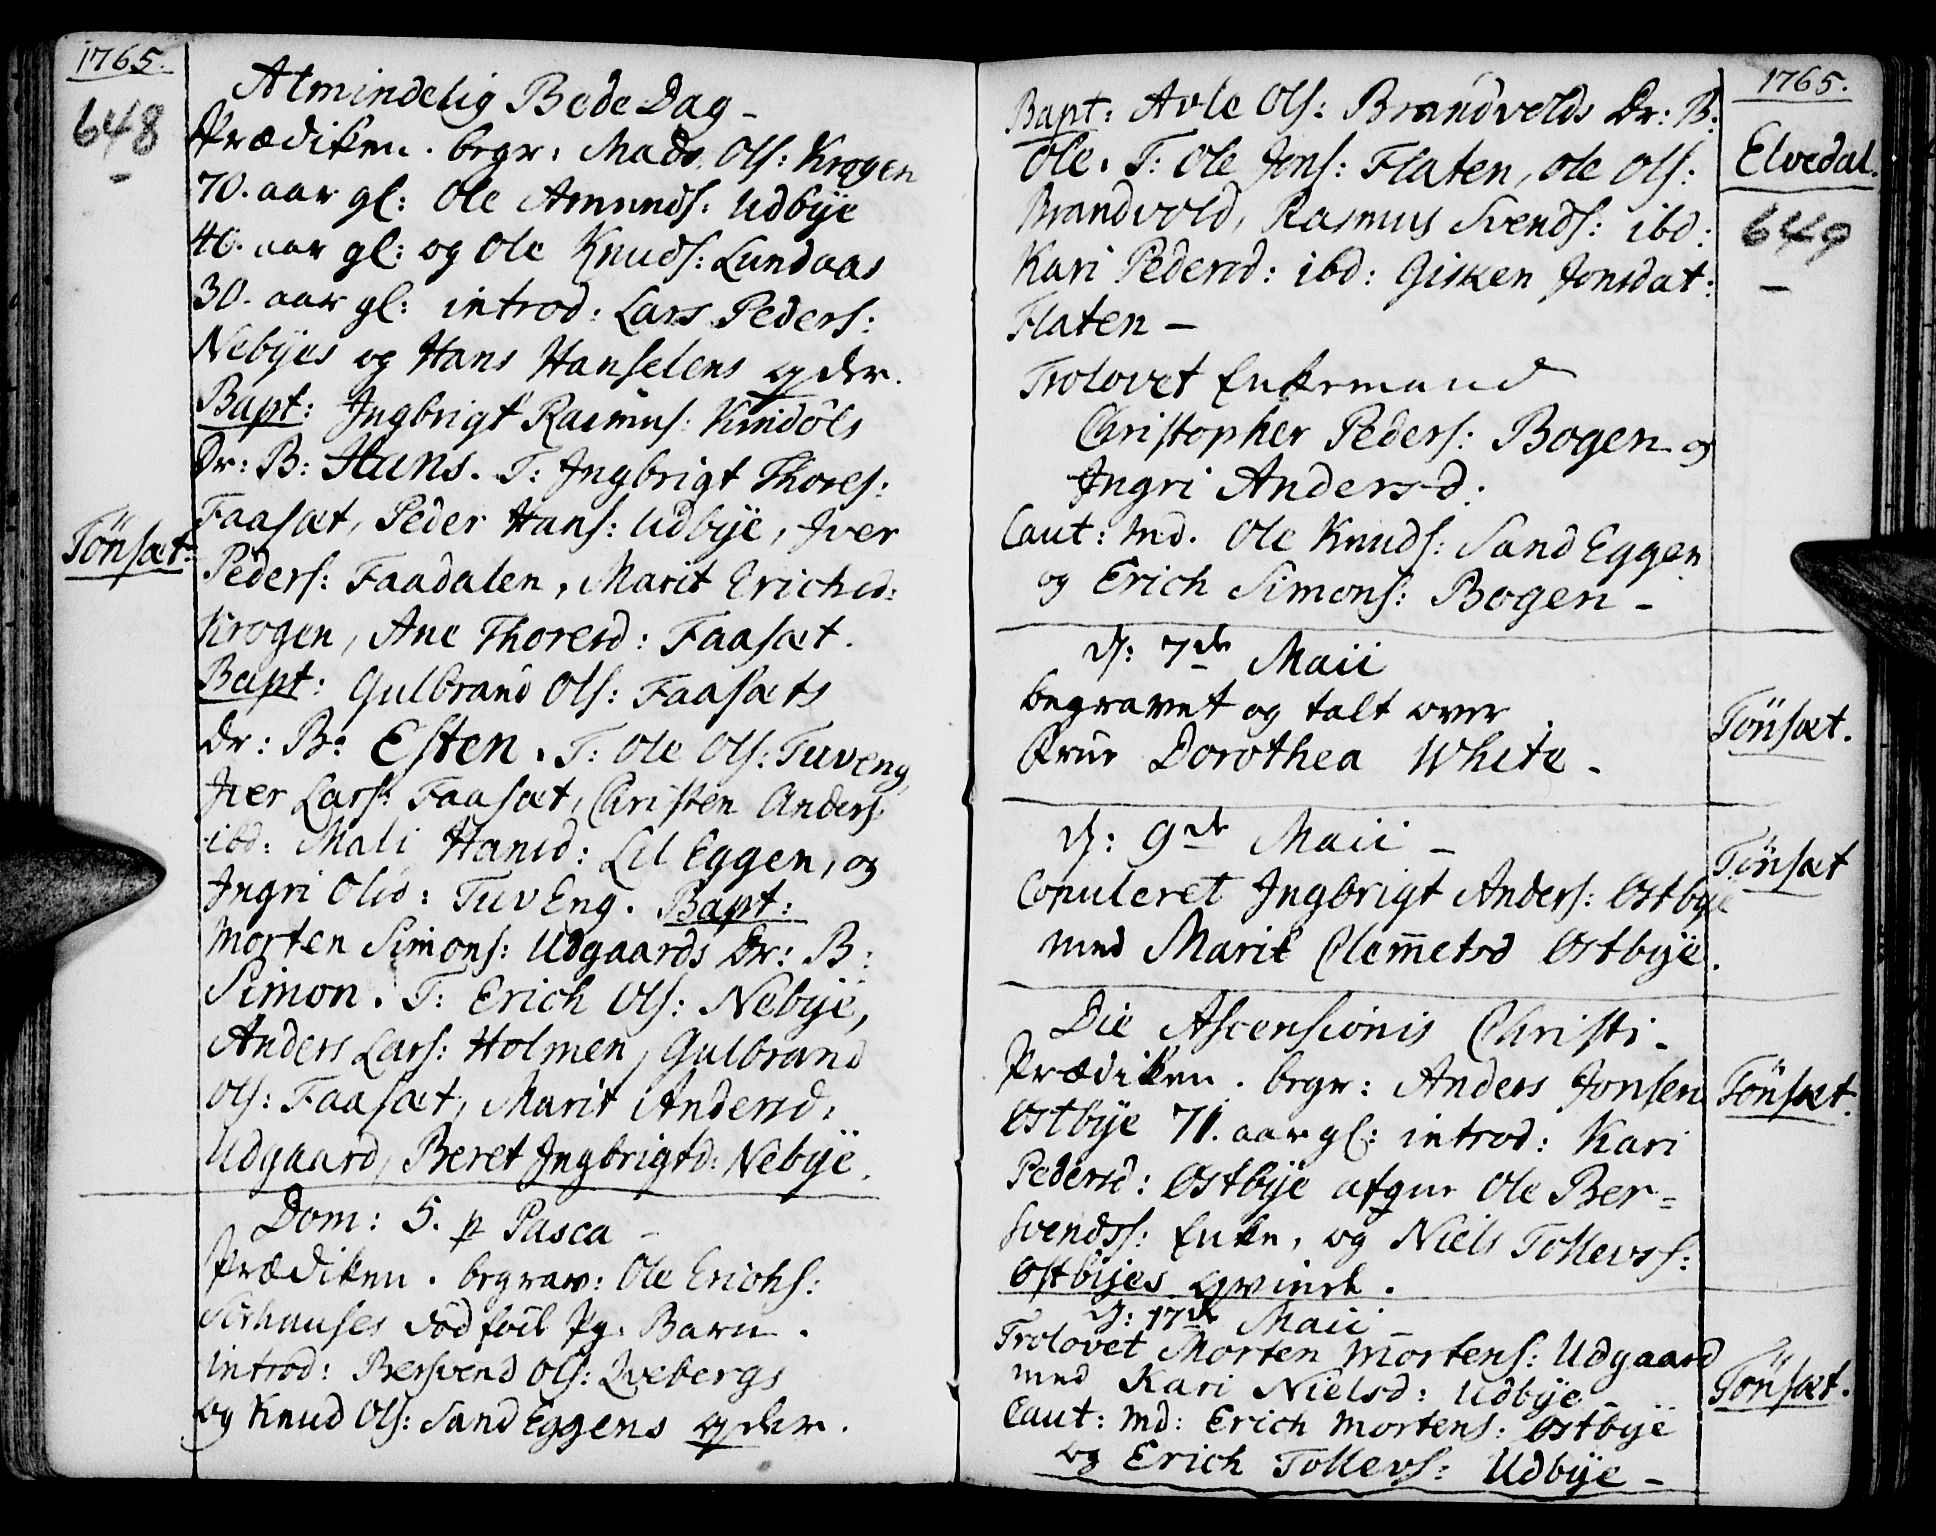 1765.
648
Almindelig Bede Dag -
Prædiken. begr: Mads Ols: Krogen
70. aar gl: Ole Amunds: Udbÿe
46. aar gl: og Ole Knuds: Lundaas
30. aar gl: introd: Lars Peders:
Nebÿes og Hans Hanselens qder.
Bapt: Ingbrigt Rasmus: Kindöls
Dr: B: Hans. T: Ingbrigt Thores:
Faasæt, Peder Hans: Udbÿe, Iver
Tönsæt:
Peders: Faadalen, Marit Erichsd:
Krogen, Ane Thoresd: Faasæt.
Bapt: Gulbrand Ols: Faasæts
Dr: B: Esten. T: Ole Ols: Tuveng
Iver Lars: Faasæt, Christen Anders:
ibd: Mali Hansd: Lil Eggen, og
Ingri Olsd: Tuv Eng. Bapt:
Morten Simons: Udgaards Dr: B:
Simon. T: Erich Ols: Nebÿe,
Anders Lars: Holmen, Gulbrand
Ols: Faasæt, Marit Andersd:
Udgaard, Beret Ingbrigtd: Nebÿe.
Dom: 5. p Pasca -
Prædiken. begrav: Ole Erichs:
död föd Pg. Barn.
introd: Bersvend Ols: Qvebergs
og Knud Ols: Sand Eggens qder.
1765.
Bapt: Avle Ols: Brandvolds Dr: B:
Elvedal.
Ole. T: Ole Jons: Flaten, Ole Ols:
Brandvold, Rasmus Svends: ibd:
649
Kari Pedersd: ibd: Gisken Jonsdat:
Flaten -
Trolovet Enkemand
Christopher Peders: Bogen og
Ingri Andersd:
Caut: md. Ole Knuds: Sand Eggen
og Erich Simons: Bogen -
d: 7de Maii
begravet og talt over
Tönsæt.
Frue Dorothea White -
d: 9de Maii -
Tönsæt
Copuleret Ingbrigt Anders: Ostbÿe
med Marit Clem̄etsd Ostbÿe.
Die Ascensionis Christi -
Prædiken. begr: Anders Jonsen
Tönsæt.
Ostbÿe 71. aar gl: introd: Kari
Pedersd: Ostbÿe afgn Ole Ber=
svends: Enke, og Niels Tollevs:
Ostbÿes qvinde.
d: 17de Maii -
Trolovet Morten Mortens: Udgaard
Tönsæt.
med Kari Nielsd: Udbÿe -
Caut: md: Erich Mortens: Ostbÿe
og Erich Tollevs: Udbÿe -